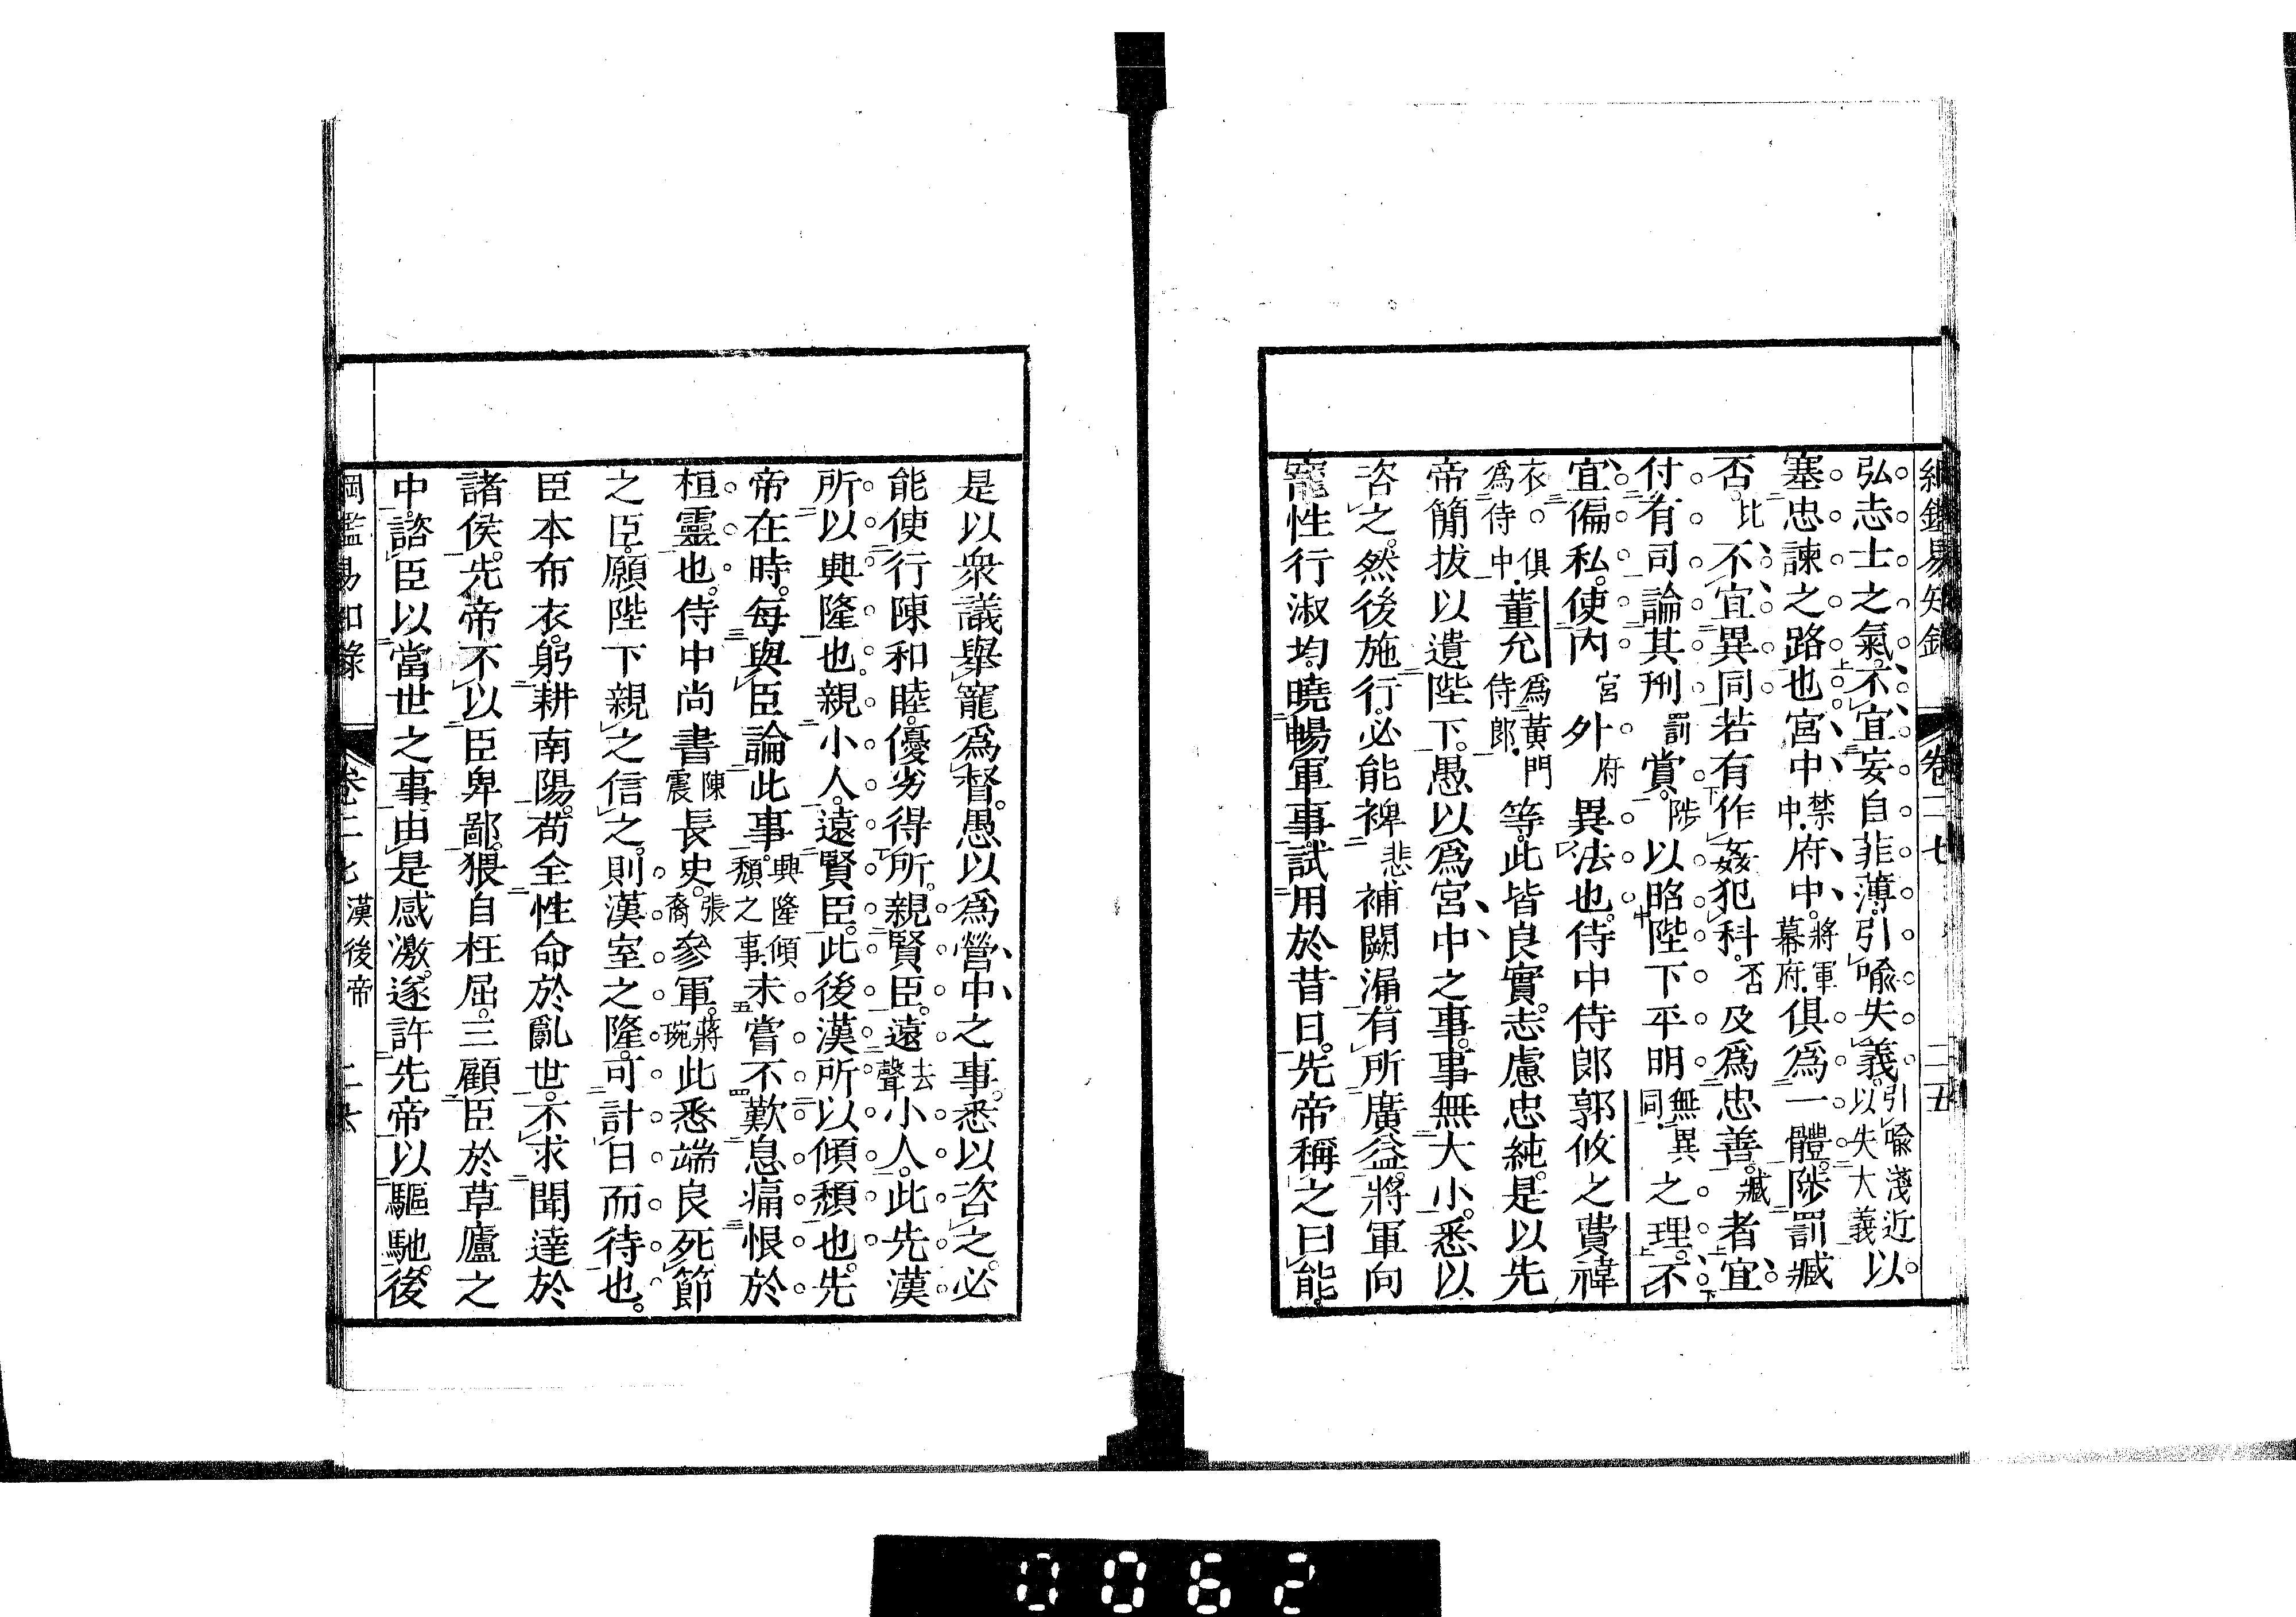 綱鑑易知錄 卷二七 二五
弘志士之氣。不宜妄自菲薄。引喩失義。引喩淺近以失大義以
塞忠諫之路也宮中禁中.府中。將軍幕府.俱爲一體。陟罰臧
否。比不宜異同若有作姦犯科。否及爲忠善。臧者宜
付有司論其刑罰賞。陟以昭陛下平明無異同.之理。不
宜偏私。使內宮外府異法也。侍中侍郎郭攸之費禕
衣。俱爲侍中.董允爲黃門侍郎.等。此皆良實。志慮忠純。是以先
帝簡拔以遺陛下。愚以爲宮中之事。事無大小。悉以
咨之。然後施行。必能裨悲補闕漏。有所廣益。將軍向
寵性行淑均。曉暢軍事。試用於昔日。先帝稱之曰能。
是以衆議舉寵爲督。愚以爲營中之事。悉以咨之。必
能使行陳和睦。優劣得所。親賢臣。遠去聲小人。此先漢
所以興隆也。親小人。遠賢臣。此後漢所以傾頹也。先
帝在時。每與臣論此事。興隆傾頹之事.未嘗不歎息痛恨於
桓靈也。侍中尚書陳震長史。張裔參軍。蔣琬此悉端良死節
之臣。願陛下親之信之。則漢室之隆。可計日而待也。
臣本布衣。躬耕南陽。苟全性命於亂世。不求聞達於
諸侯。先帝不以臣卑鄙。猥自枉屈。三顧臣於草廬之
中。諮臣以當世之事。由是感激。遂許先帝以驅馳。後
綱鑑易知錄 卷二七 漢後帝 二六
0062